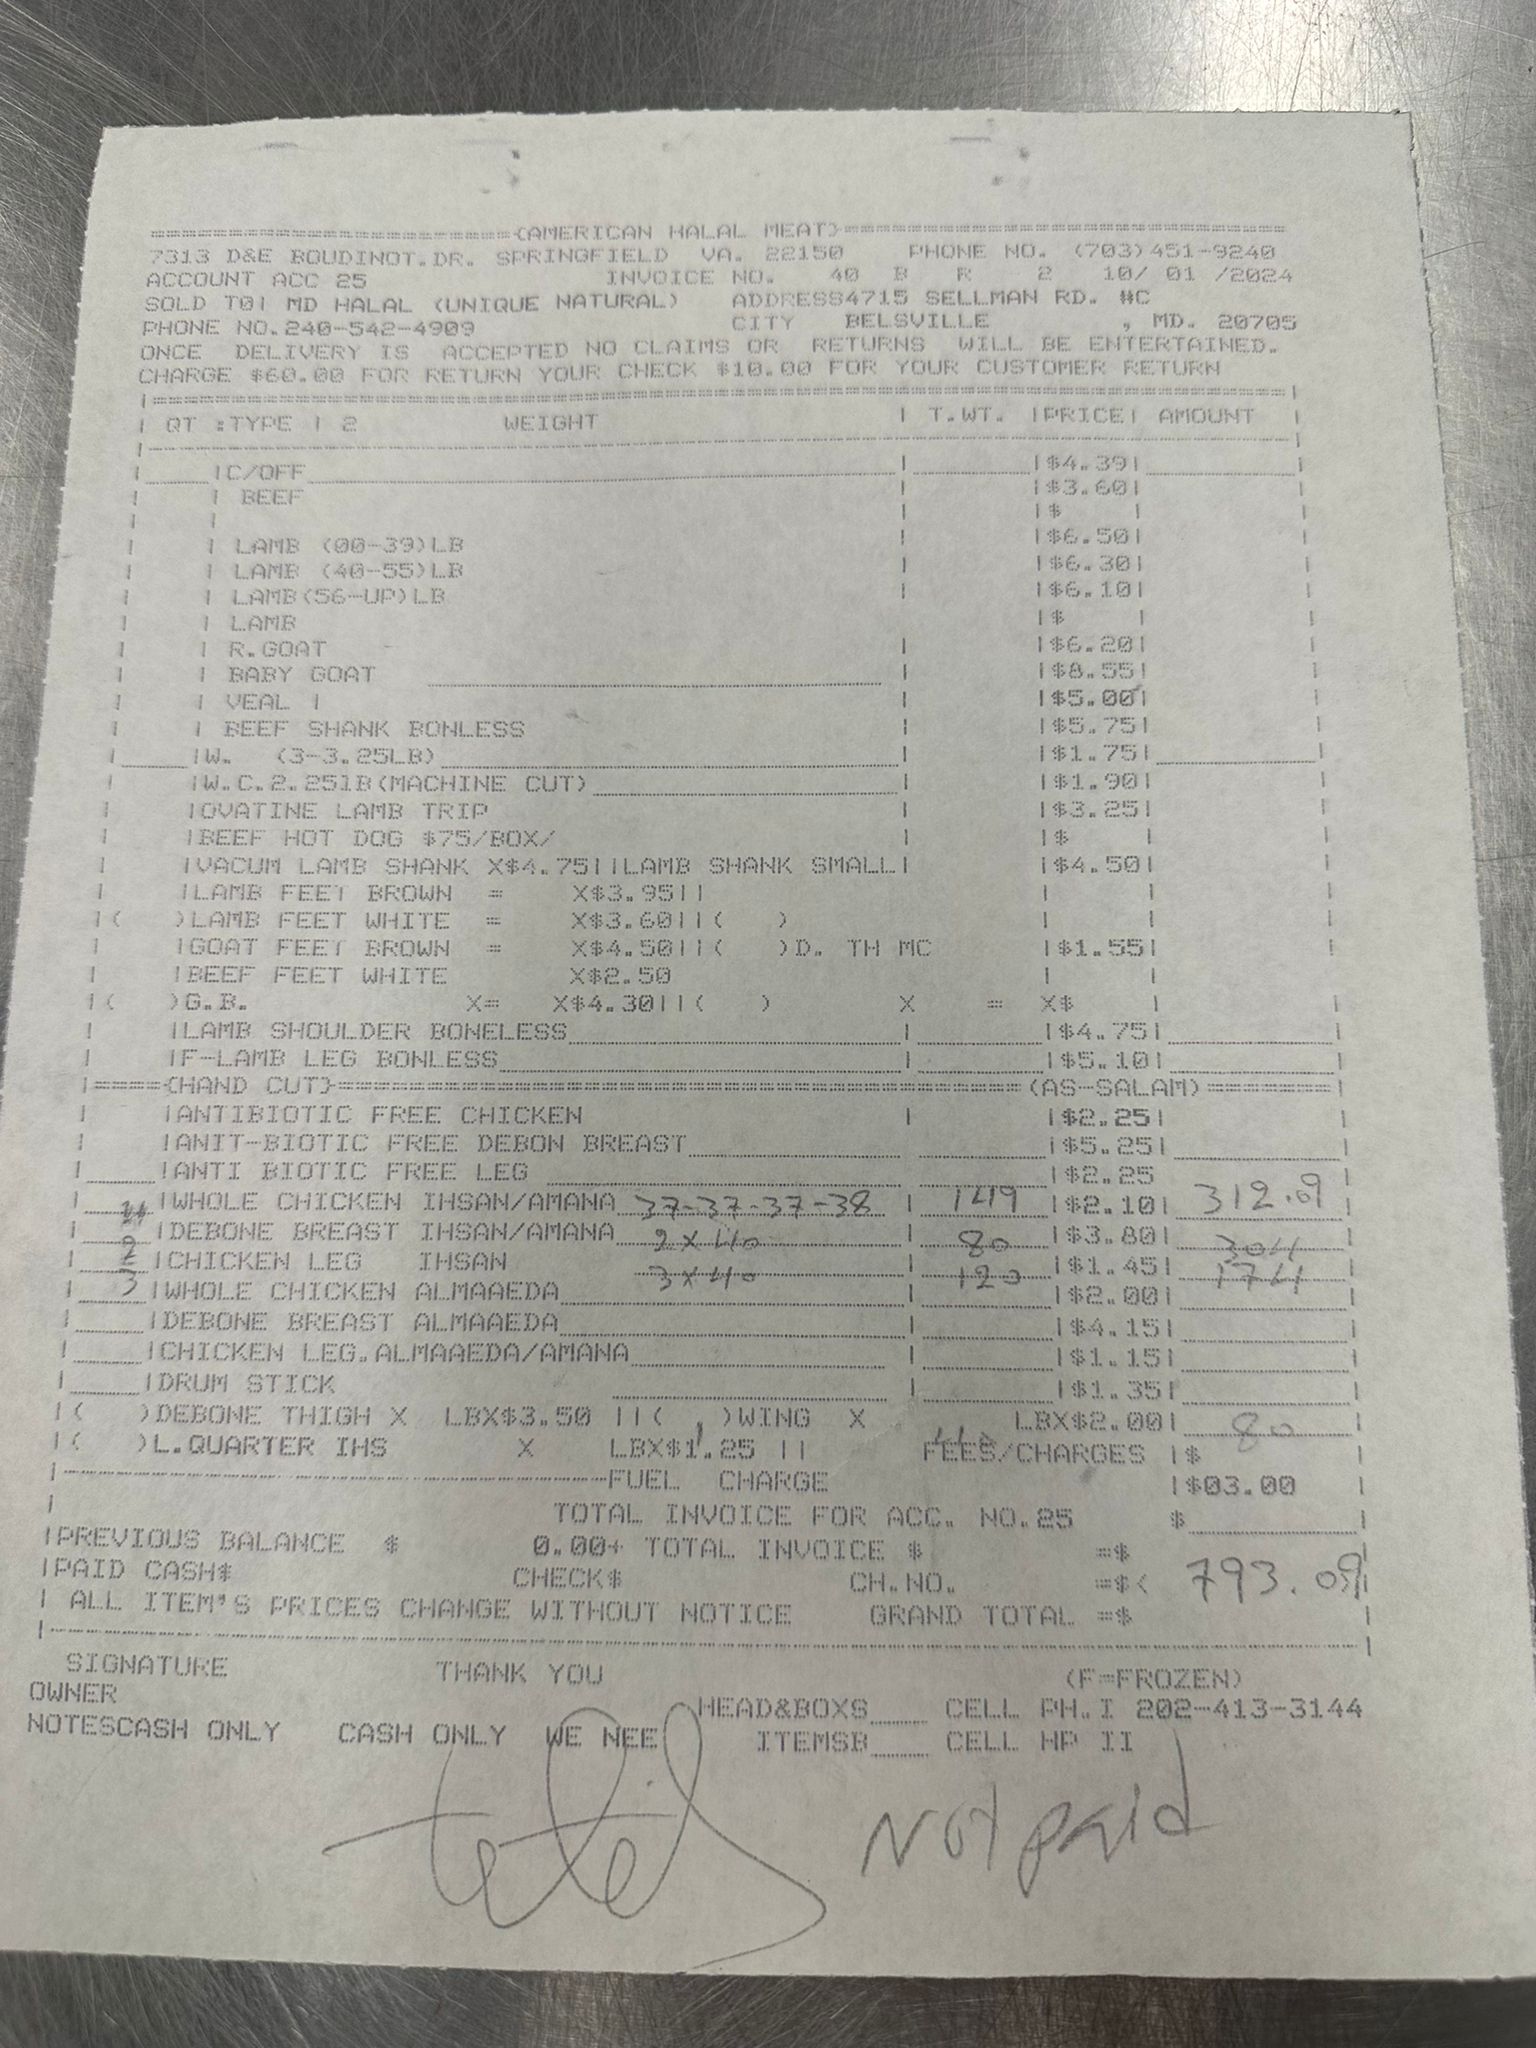 =====================(AMERICAN HALAL MEAT)=====================
7313 D&E BOUDINOT.DR. SPRINGFIELD VA. 22150 PHONE NO. (703)451-9240
ACCOUNT ACC 25 INVOICE NO. 40 B R 2 10/ 01 /2024
SOLD TO| MD HALAL (UNIQUE NATURAL) ADDRESS4715 SELLMAN RD. #C
PHONE NO.240-542-4909 CITY BELSVILLE , MD. 20705
ONCE DELIVERY IS ACCEPTED NO CLAIMS OR RETURNS WILL BE ENTERTAINED.
CHARGE $60.00 FOR RETURN YOUR CHECK $10.00 FOR YOUR CUSTOMER RETURN
| QT :TYPE | 2 WEIGHT | T.WT. |PRICE| AMOUNT
|C/OFF | |$4.39|
| BEEF | |$3.60|
| | |$ |
| LAMB (00-39)LB | |$6.50|
| LAMB (40-55)LB | |$6.30|
| LAMB(56-UP)LB | |$6.10|
| LAMB |$ |
| R.GOAT | |$6.20|
| BABY GOAT | |$8.55|
| VEAL | | |$5.00|
| BEEF SHANK BONLESS | |$5.75|
|W. (3-3.25LB) | |$1.75|
|W.C.2.25lB(MACHINE CUT) | |$1.90|
|OVATINE LAMB TRIP | |$3.25|
|BEEF HOT DOG $75/BOX/ | |$ |
|VACUM LAMB SHANK X$4.75||LAMB SHANK SMALL| |$4.50|
|LAMB FEET BROWN = X$3.95|| | |
|( )LAMB FEET WHITE = X$3.60||( ) | |
|GOAT FEET BROWN = X$4.50||( )D. TH MC |$1.55|
|BEEF FEET WHITE X$2.50 | |
|( )G.B. X= X$4.30||( ) X = X$ |
|LAMB SHOULDER BONELESS | |$4.75|
|F-LAMB LEG BONLESS | |$5.10|
|=====(HAND CUT)==========(AS-SALAM)=======|
|ANTIBIOTIC FREE CHICKEN | |$2.25|
|ANIT-BIOTIC FREE DEBON BREAST |$5.25|
|ANTI BIOTIC FREE LEG |$2.25
|WHOLE CHICKEN IHSAN/AMANA 37-37-37-38 | 149 |$2.10| 312.09
|DEBONE BREAST IHSAN/AMANA 2x40 80 |$3.80| 304
2 |CHICKEN LEG IHSAN 3x40 120 |$1.45| 174
3 |WHOLE CHICKEN ALMAAEDA | |$2.00|
|DEBONE BREAST ALMAAEDA | |$4.15|
|CHICKEN LEG.ALMAAEDA/AMANA |$1.15|
|DRUM STICK |$1.35|
|( )DEBONE THIGH X LBX$3.50 ||( )WING X LBX$2.00| 80
|( )L.QUARTER IHS X LBX$1.25 || 40 FEES/CHARGES |$
|----------FUEL CHARGE |$03.00
| TOTAL INVOICE FOR ACC. NO.25 $
|PREVIOUS BALANCE $ 0.00+ TOTAL INVOICE $ =$
|PAID CASH$ CHECK$ CH.NO. =$< 793.09
| ALL ITEM'S PRICES CHANGE WITHOUT NOTICE GRAND TOTAL =$
SIGNATURE THANK YOU (F=FROZEN)
OWNER HEAD&BOXS CELL PH.I 202-413-3144
NOTESCASH ONLY CASH ONLY WE NEE ITEMSB CELL HP II
Not paid